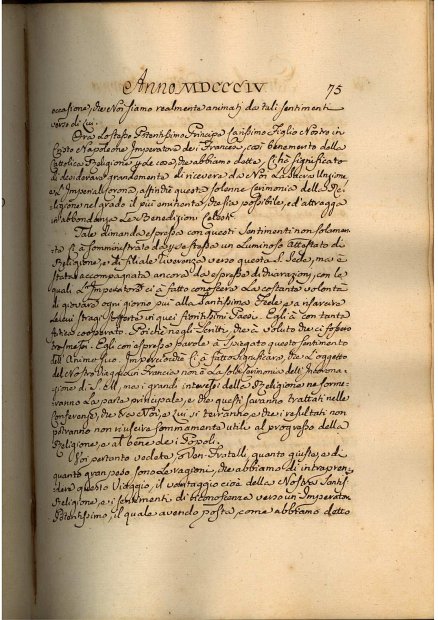 Anno MDCCCIV 75
occasione, che Noi siamo realmente animati da tali sentimenti
verso di Lui.
Ora lo stesso Potentissimo Principe Carissimo Figlio Nostro in
Cristo Napoleone Imperatore de i Francesi, così benemerito della
Cattolica Religione per le cose, che abbiamo dette, Ci hà significato
di desiderare grandemente di ricevere da Noi La Sacra Unzione,
e L'Imperial Corona, affinchè questa solenne Cerimonia della Re-
ligione nel grado il più eminente, che sia possibile, ed attragga
in abbondanza Le Benedizioni Celesti.
Tale dimanda espressa con questi Sentimenti non solamen-
te ci à somministrato da se stessa un Luminoso Attestato di
Religione, e di filiale riverenza verso questa S. Sede, ma è
stata accompagnata ancora da espresse dichiarazioni, con le
quali L'Imperatore ci à fatto conoscere La costante volontà
di giovare ogni giorno più alla Santissima Fede, e a risarcire
Le stragi sofferte in quei floridissimi Paesi. Egli à con tanto
cooperato. Poichè negli Scritti, che à voluto che ci fossero
trasmessi. Egli con espresse parole à spiegato questo sentimento
dell'Animo suo. Imperciocchè Ci à fatto significare, che L'oggetto
del Nostro Viaggio in Francia non è La sola Cerimonia dell'Incorona-
zione di S. M., ma i grandi interessi della Religione ne forme-
ranno La parte principale, e che questi saranno trattati nelle
Conferenze, che tra Noi, e Lui si terranno, e che i resultati non
potranno non riuscire sommamente utili al progresso della
Religione, e al bene dei Popoli.
Voi pertanto vedete, Ven. Fratelli, quanto giuste, e di
quanto gran peso sono Le ragioni, che abbiamo di intrapren-
dere questo Viaggio, il vantaggio cioè della Nostra Santiss.
Religione, e i sentimenti di riconoscenza verso un Imperator
Potentissimo, il quale avendo posta, come abbiamo detto